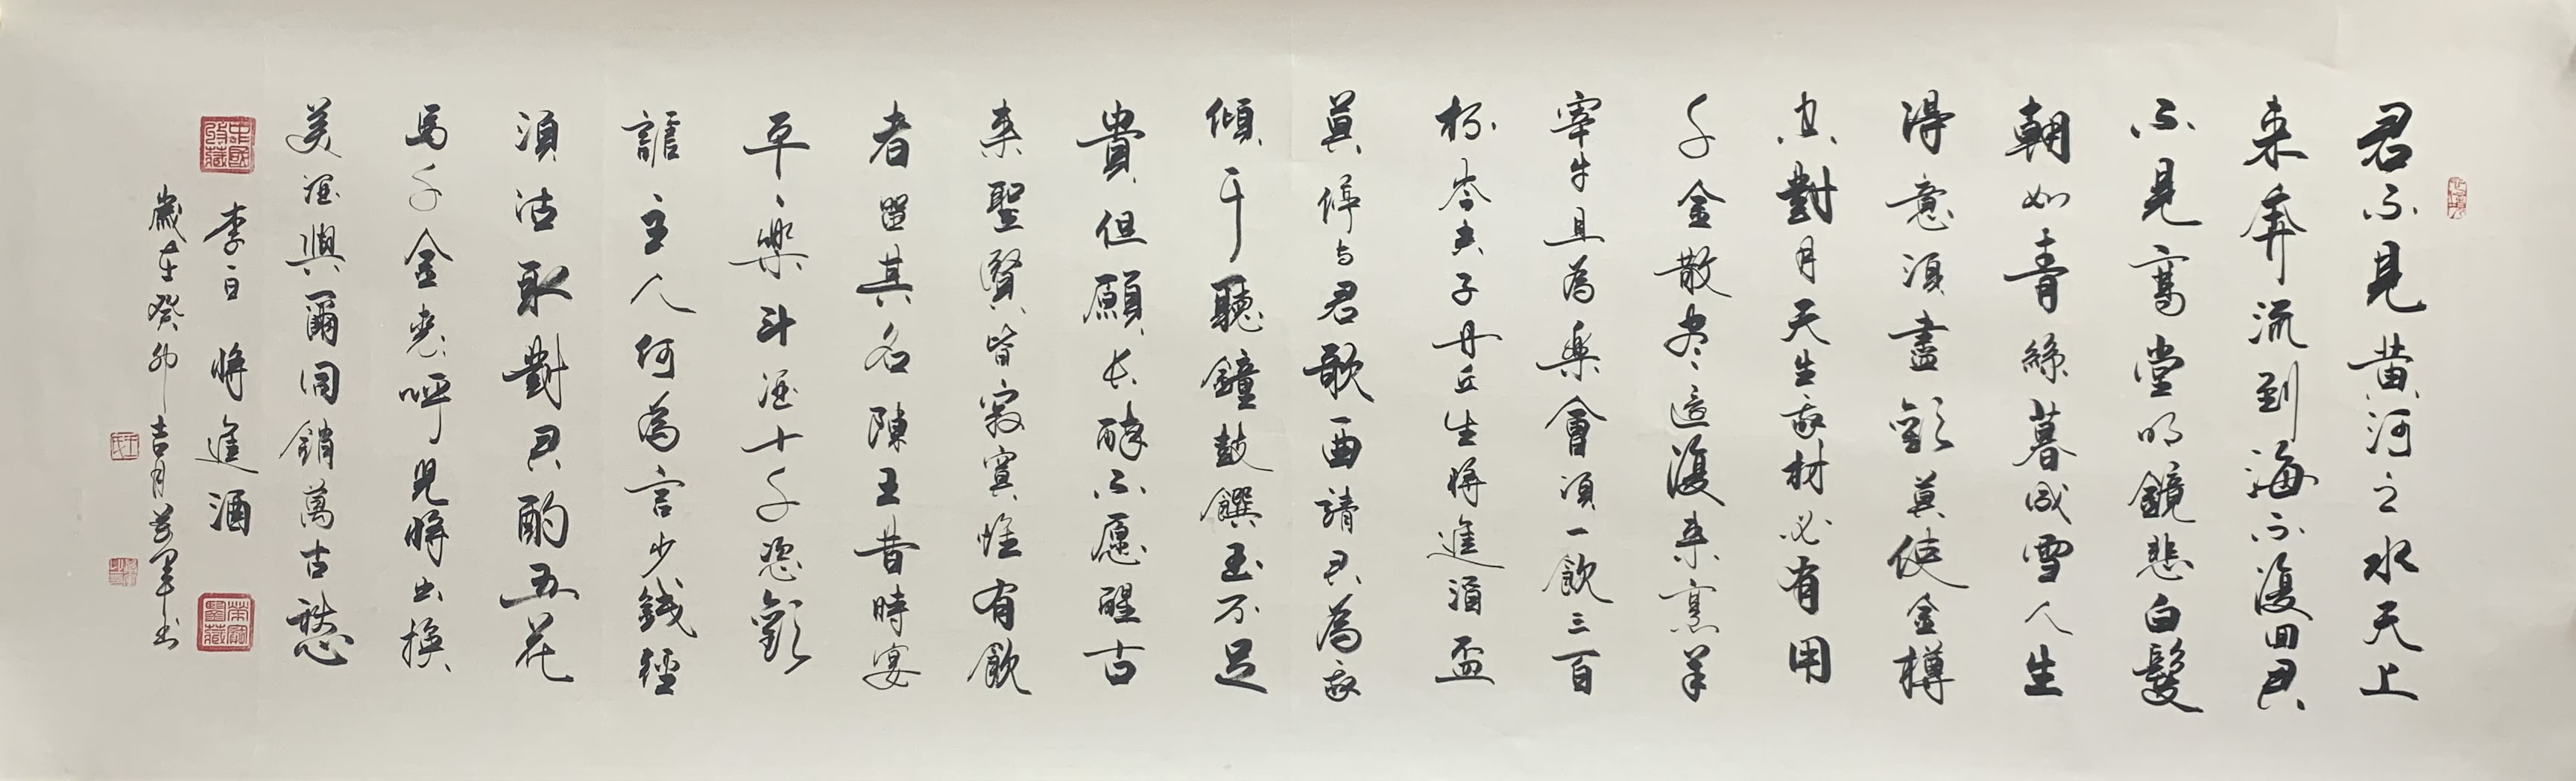 君不見黄河之水天上
来奔流到海不復回君
不見髙堂明鏡悲白髮
朝如青絲暮成雪人生
得意須盡歡莫使金樽
空對月天生我材必有用
千金散盡還復来烹羊
宰牛且為樂會須一飲三百
杯岑夫子丹丘生將進酒盃
莫停与君歌一曲請君為我
傾耳聽鐘鼓饌玉不足
貴但願長醉不愿醒古
来聖賢皆寂寞惟有飲
者留其名陳王昔時宴
平樂斗酒十千恣歡
謔主人何為言少錢徑
須沽取對君酌五花
馬千金裘呼兒將出換
美酒與爾同銷萬古愁
李白將進酒
歲在癸卯吉月書